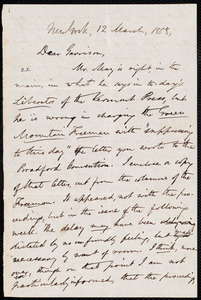 New York, 12 March, 1858.
Dear Garrison,
Mr. May is right in the
main, in what he says in to-day's
Liberator of the Vermont Press, but
he is wrong in charging the Green
Mountain Freeman with "suppressing
to this day" the letter you wrote to the
Bradford Convention. I enclose a copy
of that letter, cut from the columns of the
Freeman. It appeared, not with the procee-
dings, but in the issue of the following
week. The delay may have been
dictated by an unfriendly feeling, but
necessary by want of room. I think, not
one, though on that point I am not
particularly informed, that the proceedings